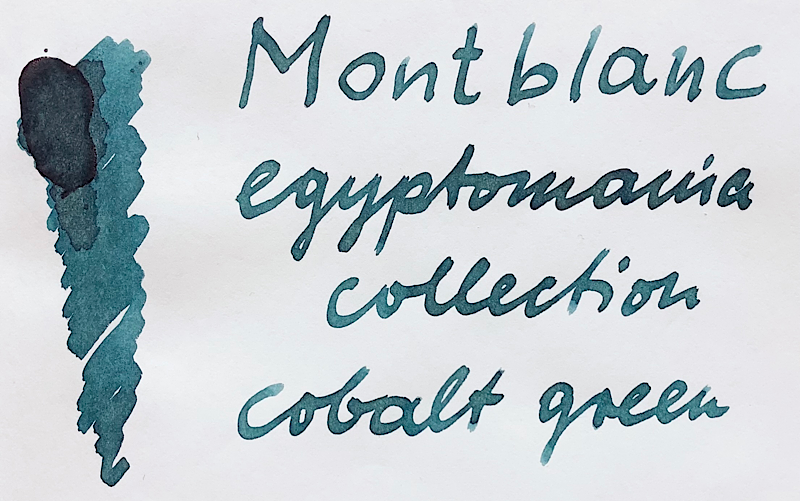 Montblanc
egyptomania
collection
cobalt green